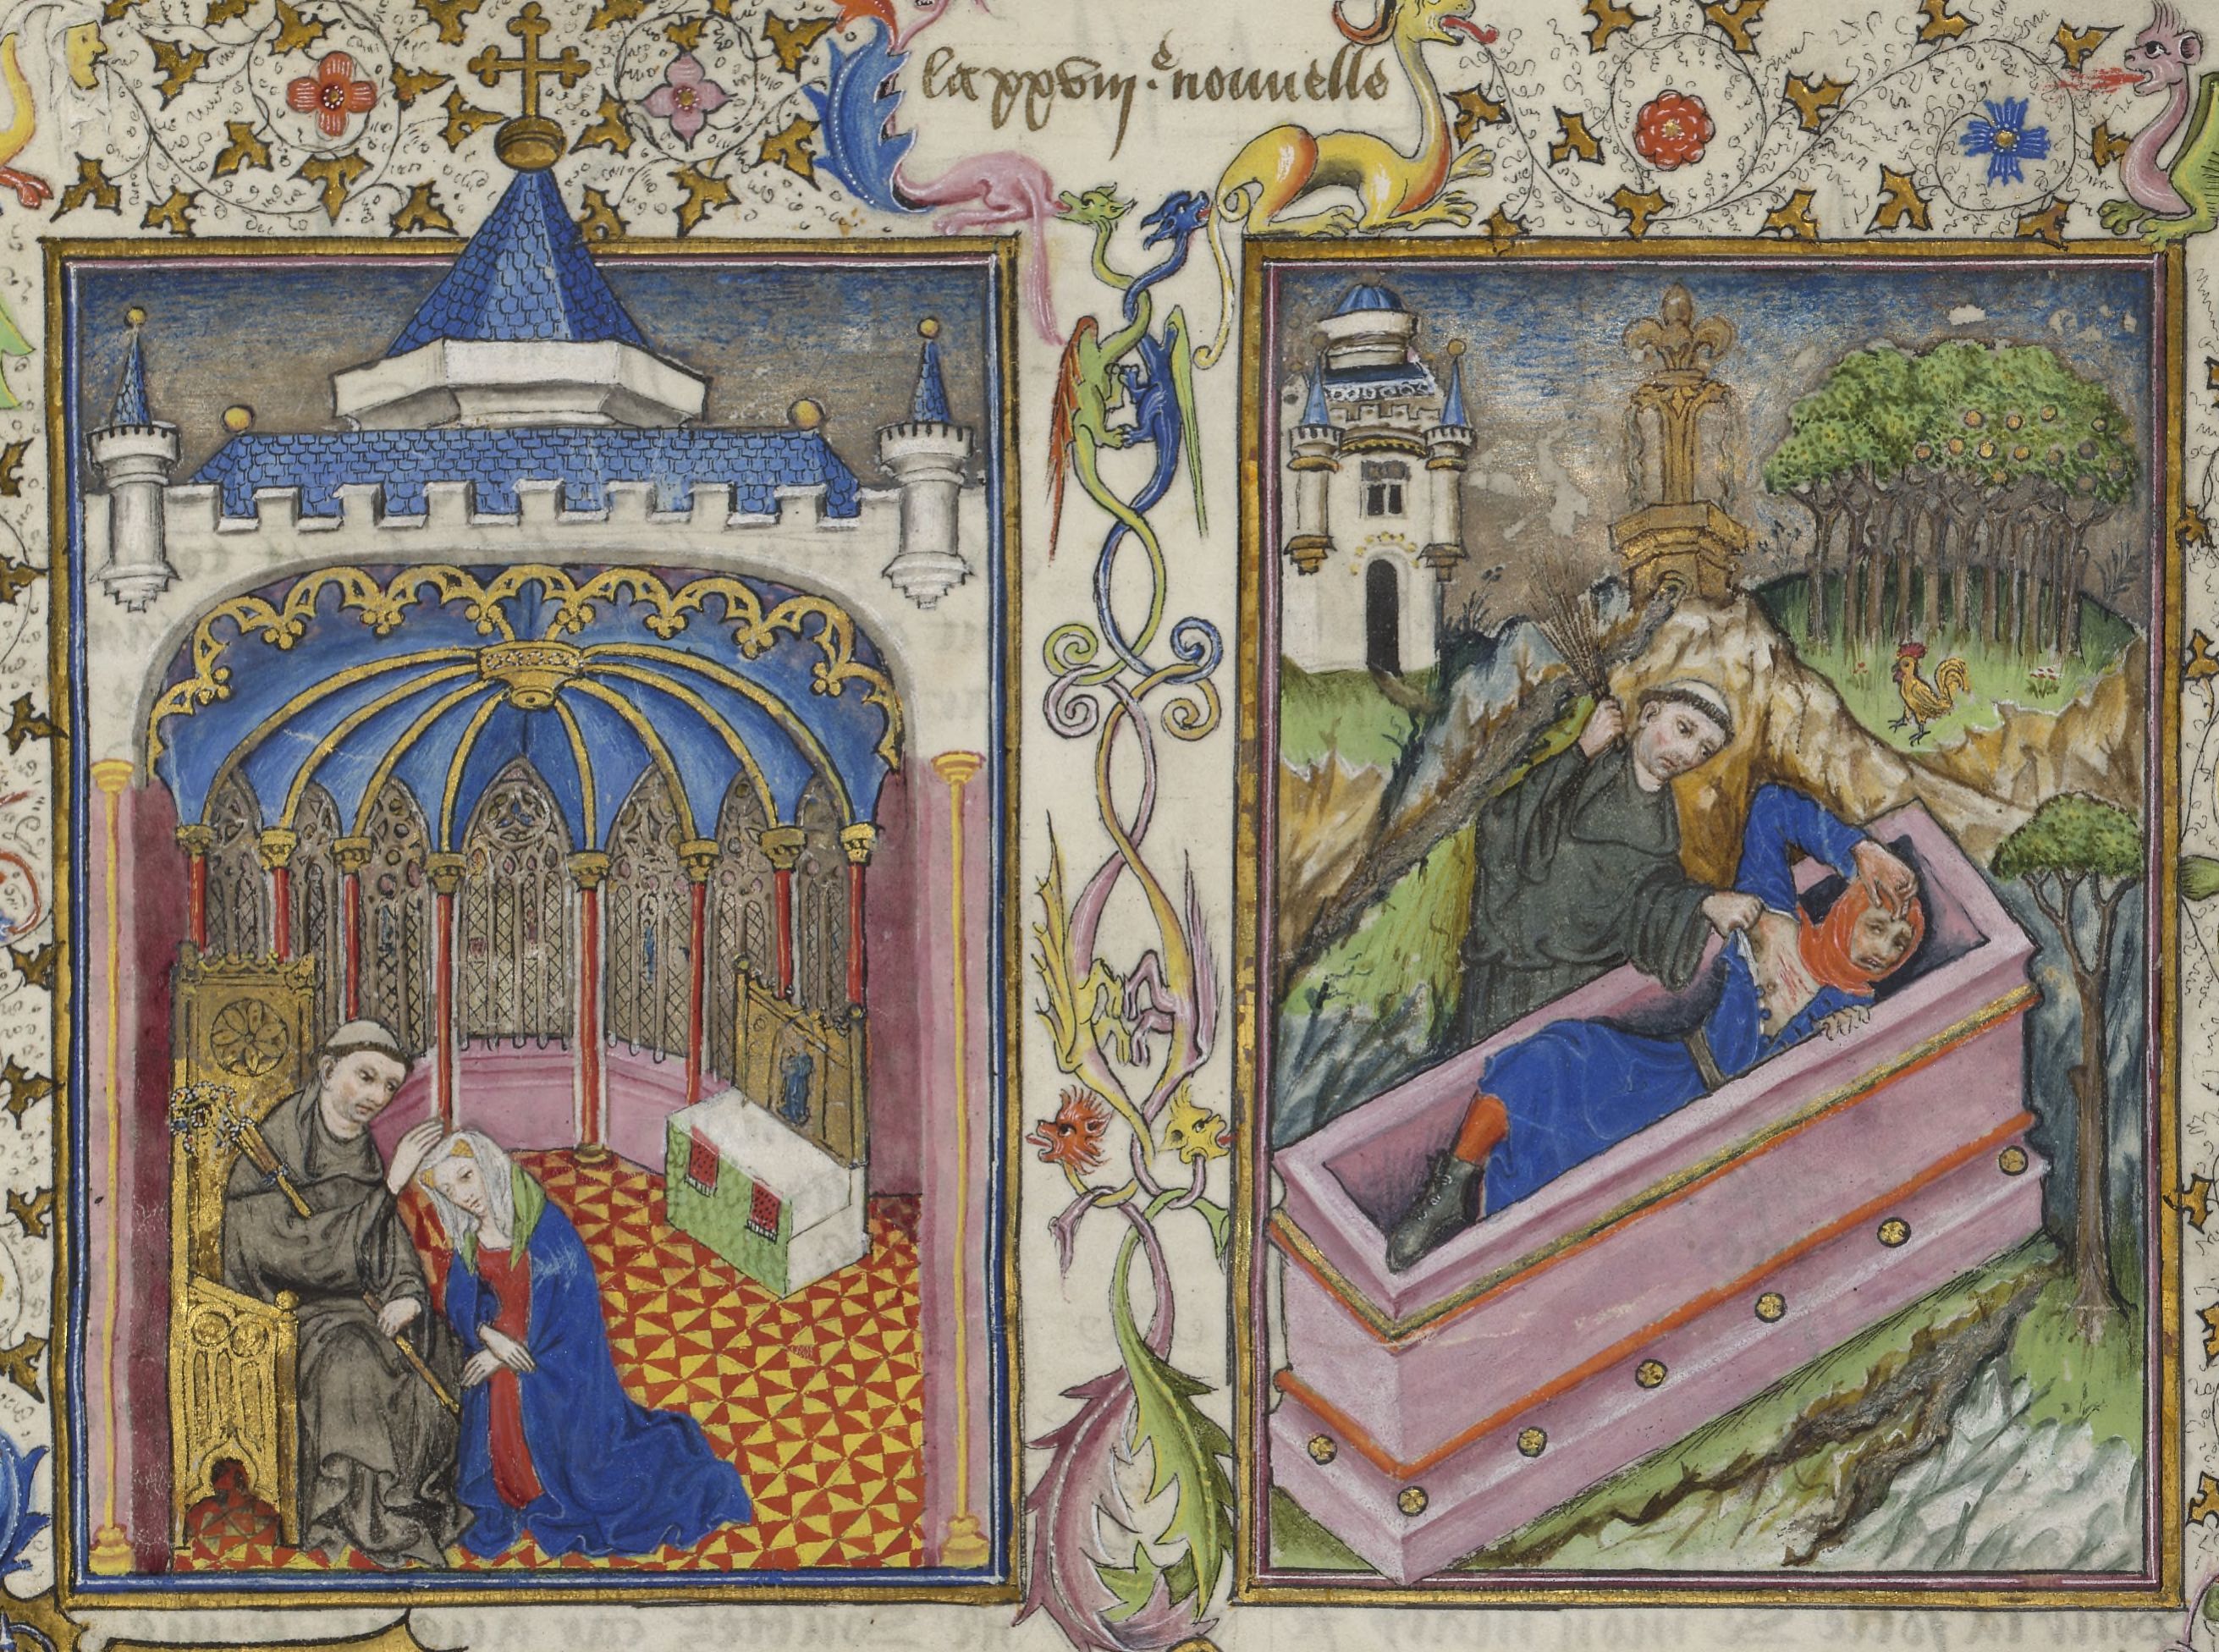 la xxviij.ͤ nouuelle